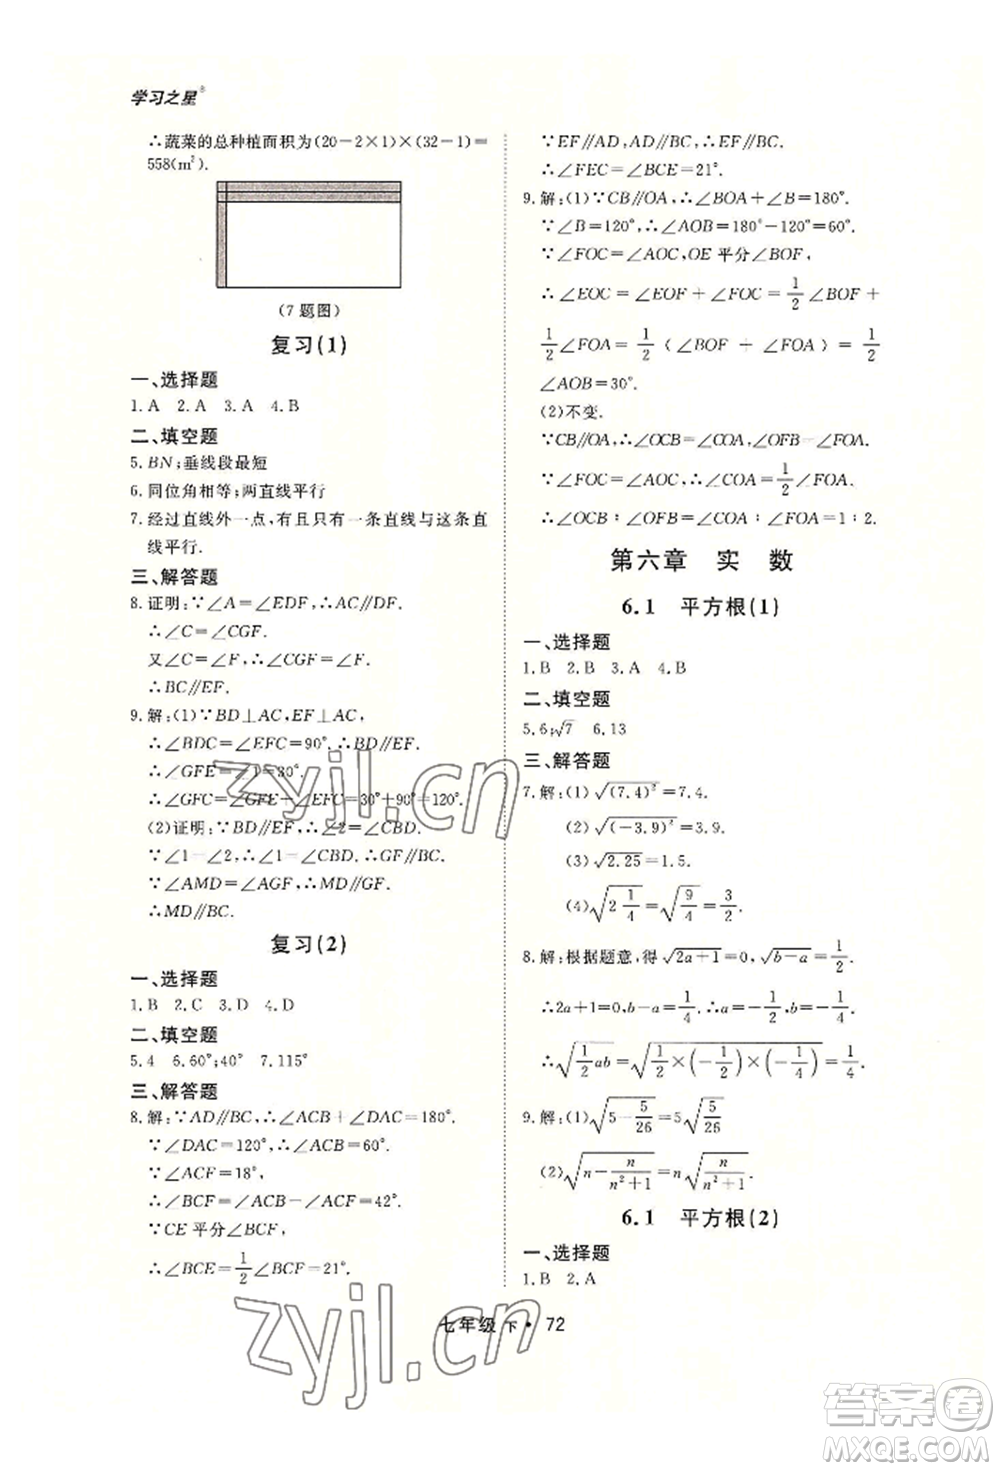 学习之星®
∴蔬菜的总种植面积为(20－2×1)×(32－1)＝
558(m²).
(7题图)
复习(1)
一、选择题
1.A 2.A 3.A 4.B
二、填空题
5.BN;垂线段最短
6.同位角相等;两直线平行
7.经过直线外一点,有且只有一条直线与这条直
线平行.
三、解答题
8.证明:∵∠A＝∠EDF,∴AC∥DF.
∴∠C＝∠CGF.
又∠C＝∠F,∴∠CGF＝∠F.
∴BC∥EF.
9.解:(1)∵BD⊥AC,EF⊥AC,
∴∠BDC＝∠EFC＝90°.
∵∠GFE＝∠1＝30°.
∴∠GFC＝∠GFE＋∠EFC＝30°＋90°＝120°.
(2)证明:∵BD∥EF,∴∠2＝∠CBD.
∵∠1＝∠2,∴∠1＝∠CBD.∴GF∥BC.
∵∠AMD＝∠AGF,∴MD∥GF.
∴MD∥BC.
复习(2)
一、选择题
1.B 2.C 3.D 4.D
二、填空题
5.4 6.60°;40° 7.115°
三、解答题
8.解:∵AD∥BC,∴∠ACB＋∠DAC＝180°.
∵∠DAC＝120°,∴∠ACB＝60°.
∵∠ACF＝18°,
∴∠BCF＝∠ACB－∠ACF＝42°.
∵CE平分∠BCF,
∴∠BCE＝1/2∠BCF＝21°.
∵EF∥AD,AD∥BC,∴EF∥BC.
∴∠FEC＝∠BCE＝21°.
9.解:(1)∵CB∥OA,∴∠BOA＋∠B＝180°.
∵∠B＝120°,∴∠AOB＝180°－120°＝60°.
∵∠FOC＝∠AOC,OE平分∠BOF,
∴∠EOC＝∠EOF＋∠FOC＝1/2∠BOF＋
1/2∠FOA＝1/2(∠BOF＋∠FOA)＝1/2
∠AOB＝30°.
(2)不变.
∵CB∥OA,∴∠OCB＝∠COA,∠OFB＝∠FOA.
∵∠FOC＝∠AOC,∴∠COA＝1/2∠FOA.
∴∠OCB:∠OFB＝∠COA:∠FOA＝1:2.
第六章 实 数
6.1 平方根(1)
一、选择题
1.B 2.B 3.A 4.B
二、填空题
5.6;√7 6.13
三、解答题
7.解:(1)√(7.4)²＝7.4.
(2)√(－3.9)²＝3.9.
(3)√2.25＝1.5.
(4)√(2 1/4)＝√(9/4)＝3/2.
8.解:根据题意,得√(2a＋1)＝0,√(b－a)＝1/2,
∴2a＋1＝0,b－a＝1/4.∴a＝－1/2,b＝－1/4.
∴√(1/2 ab)＝√(1/2×(－1/2)×(－1/4))＝1/4.
9.解:(1)√(5－5/26)＝5√(5/26)
(2)√(n－n/(n²＋1))＝n√(n/(n²＋1)).
6.1 平方根(2)
一、选择题
1.B 2.A
七年级 下·72
zyjl.cn
zyjl.cn
答案卷
MXQE.COM